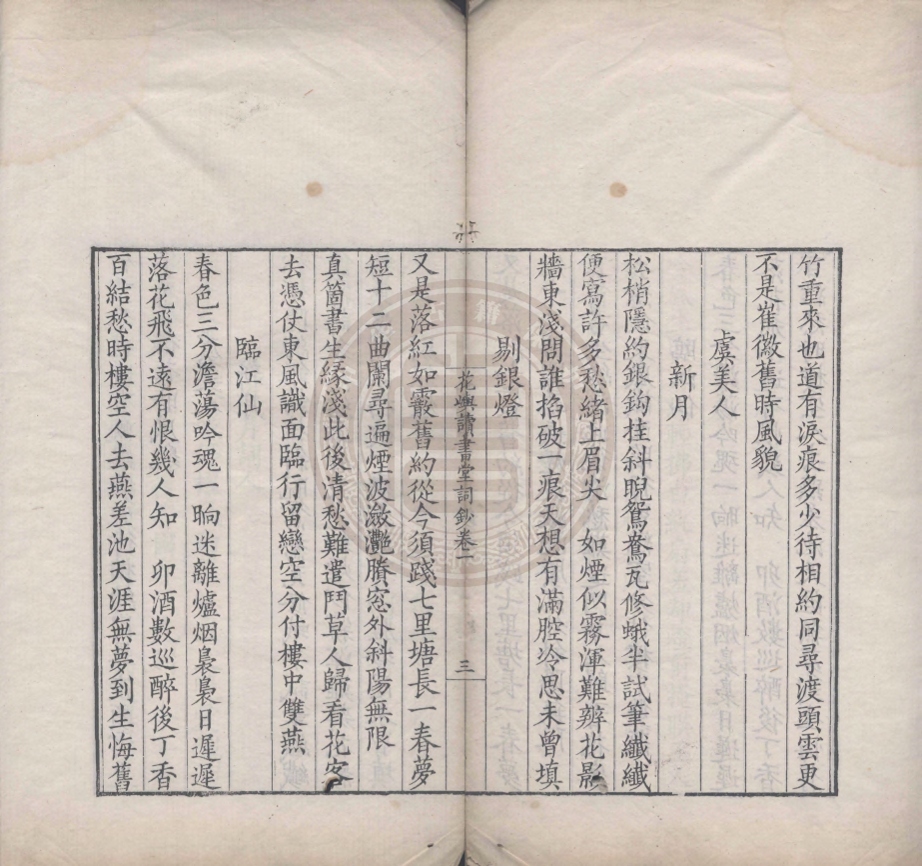 竹重來也道有淚痕多少待相約同尋渡頭雲更
不是崔徽舊時風貌
虞美人
新月
松梢隱約銀鈎挂斜睨鴛鴦瓦修蛾半試筆纖纖
便寫許多愁緒上眉尖　如煙似霧渾難辨花影
牆東淺問誰掐破一痕天想有滿腔冷思未曾填
剔銀燈
花嶼讀書堂詞鈔卷二
三
又是落紅如霰舊約從今須踐七里塘長一春夢
短十二曲闌尋遍煙波瀲灩賸窓外斜陽無限
真箇書生緣淺此後清愁難遣鬥草人歸看花客
去憑仗東風識面臨行留戀空分付樓中雙燕
臨江仙
春色三分澹蕩吟魂一晌迷離爐烟裊裊日遲遲
落花飛不遠有恨幾人知　卯酒數巡醉後丁香
百結愁時樓空人去燕差池天涯無夢到生悔舊